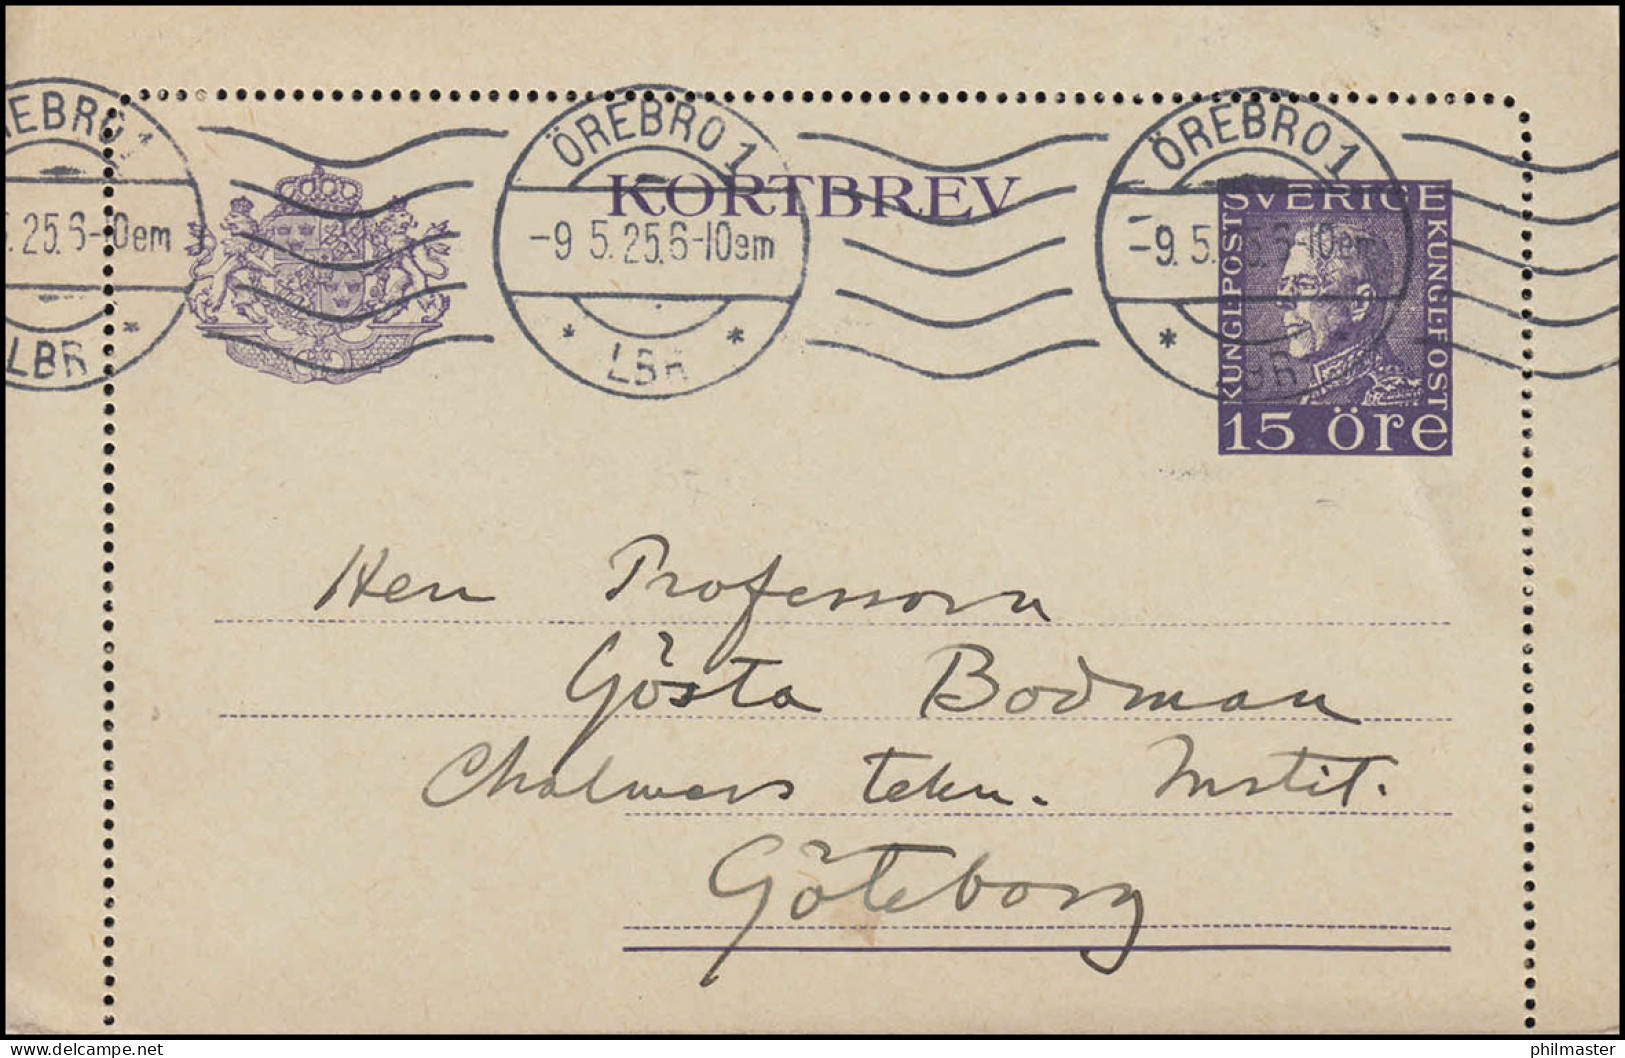 ÖREBRO 1
ÖREBRO 1
KORTBREV
-9 5.25.6-10em
-9.5.
6-10em
.25.6-10em
LBR
LBR
SVERIGE
KUNGL POST
KUNGL POST
15 öre
Herr Professorn
Gösta Bodman
Chalmers tekn. Instit.
Göteborg
delcampe.net
philmaster